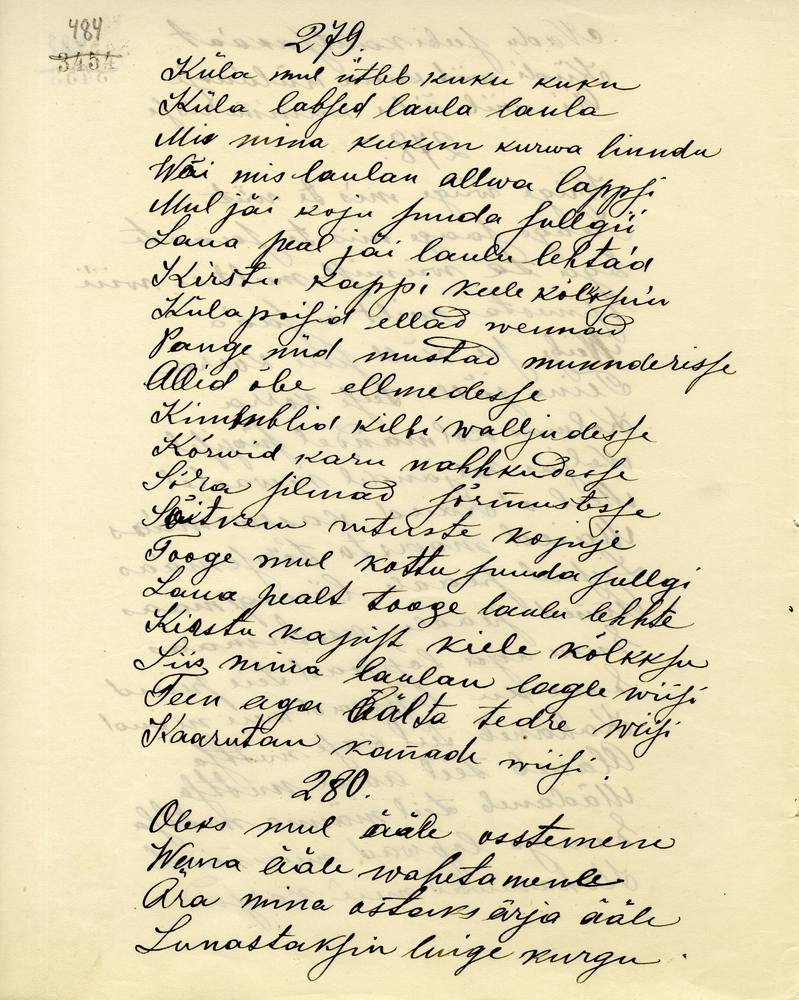 484
3454
279.
Küla mul ütleb kuku kuku
Küla labsed laula laula
Mis mina kukun kurwa linndu
Wäi mis laulan allwa lappsi
Mul jäi koju suuda sullgii
Laua peal jäi laulu lehtad
Kirstu kappi keele kõlkksun
Küla poisid ellad wennad
Pange nüd mustad munnderisse
Allid õbe ellmedesse
Kimmblid kilbi walljudesse
Kõrwid karu nahhkudesse
Sõra silmad sõrmustesse
Sõit ruttuste kojuje
Tooge mul kottu suuda sullgi
Laua pealt tooge laulu lehhte
Kirstu kapist kiele kõlkksu
Siis mina laulan lagle wiisi
Teen aga äälta tedre wiisi
Kaarutan kannade wiisi.
280.
Oleks mul ääle osstemene
Wenna ääle wahetamenle
Ära mina ostaks ärja ääle
Lunastaksin luige kurgu.